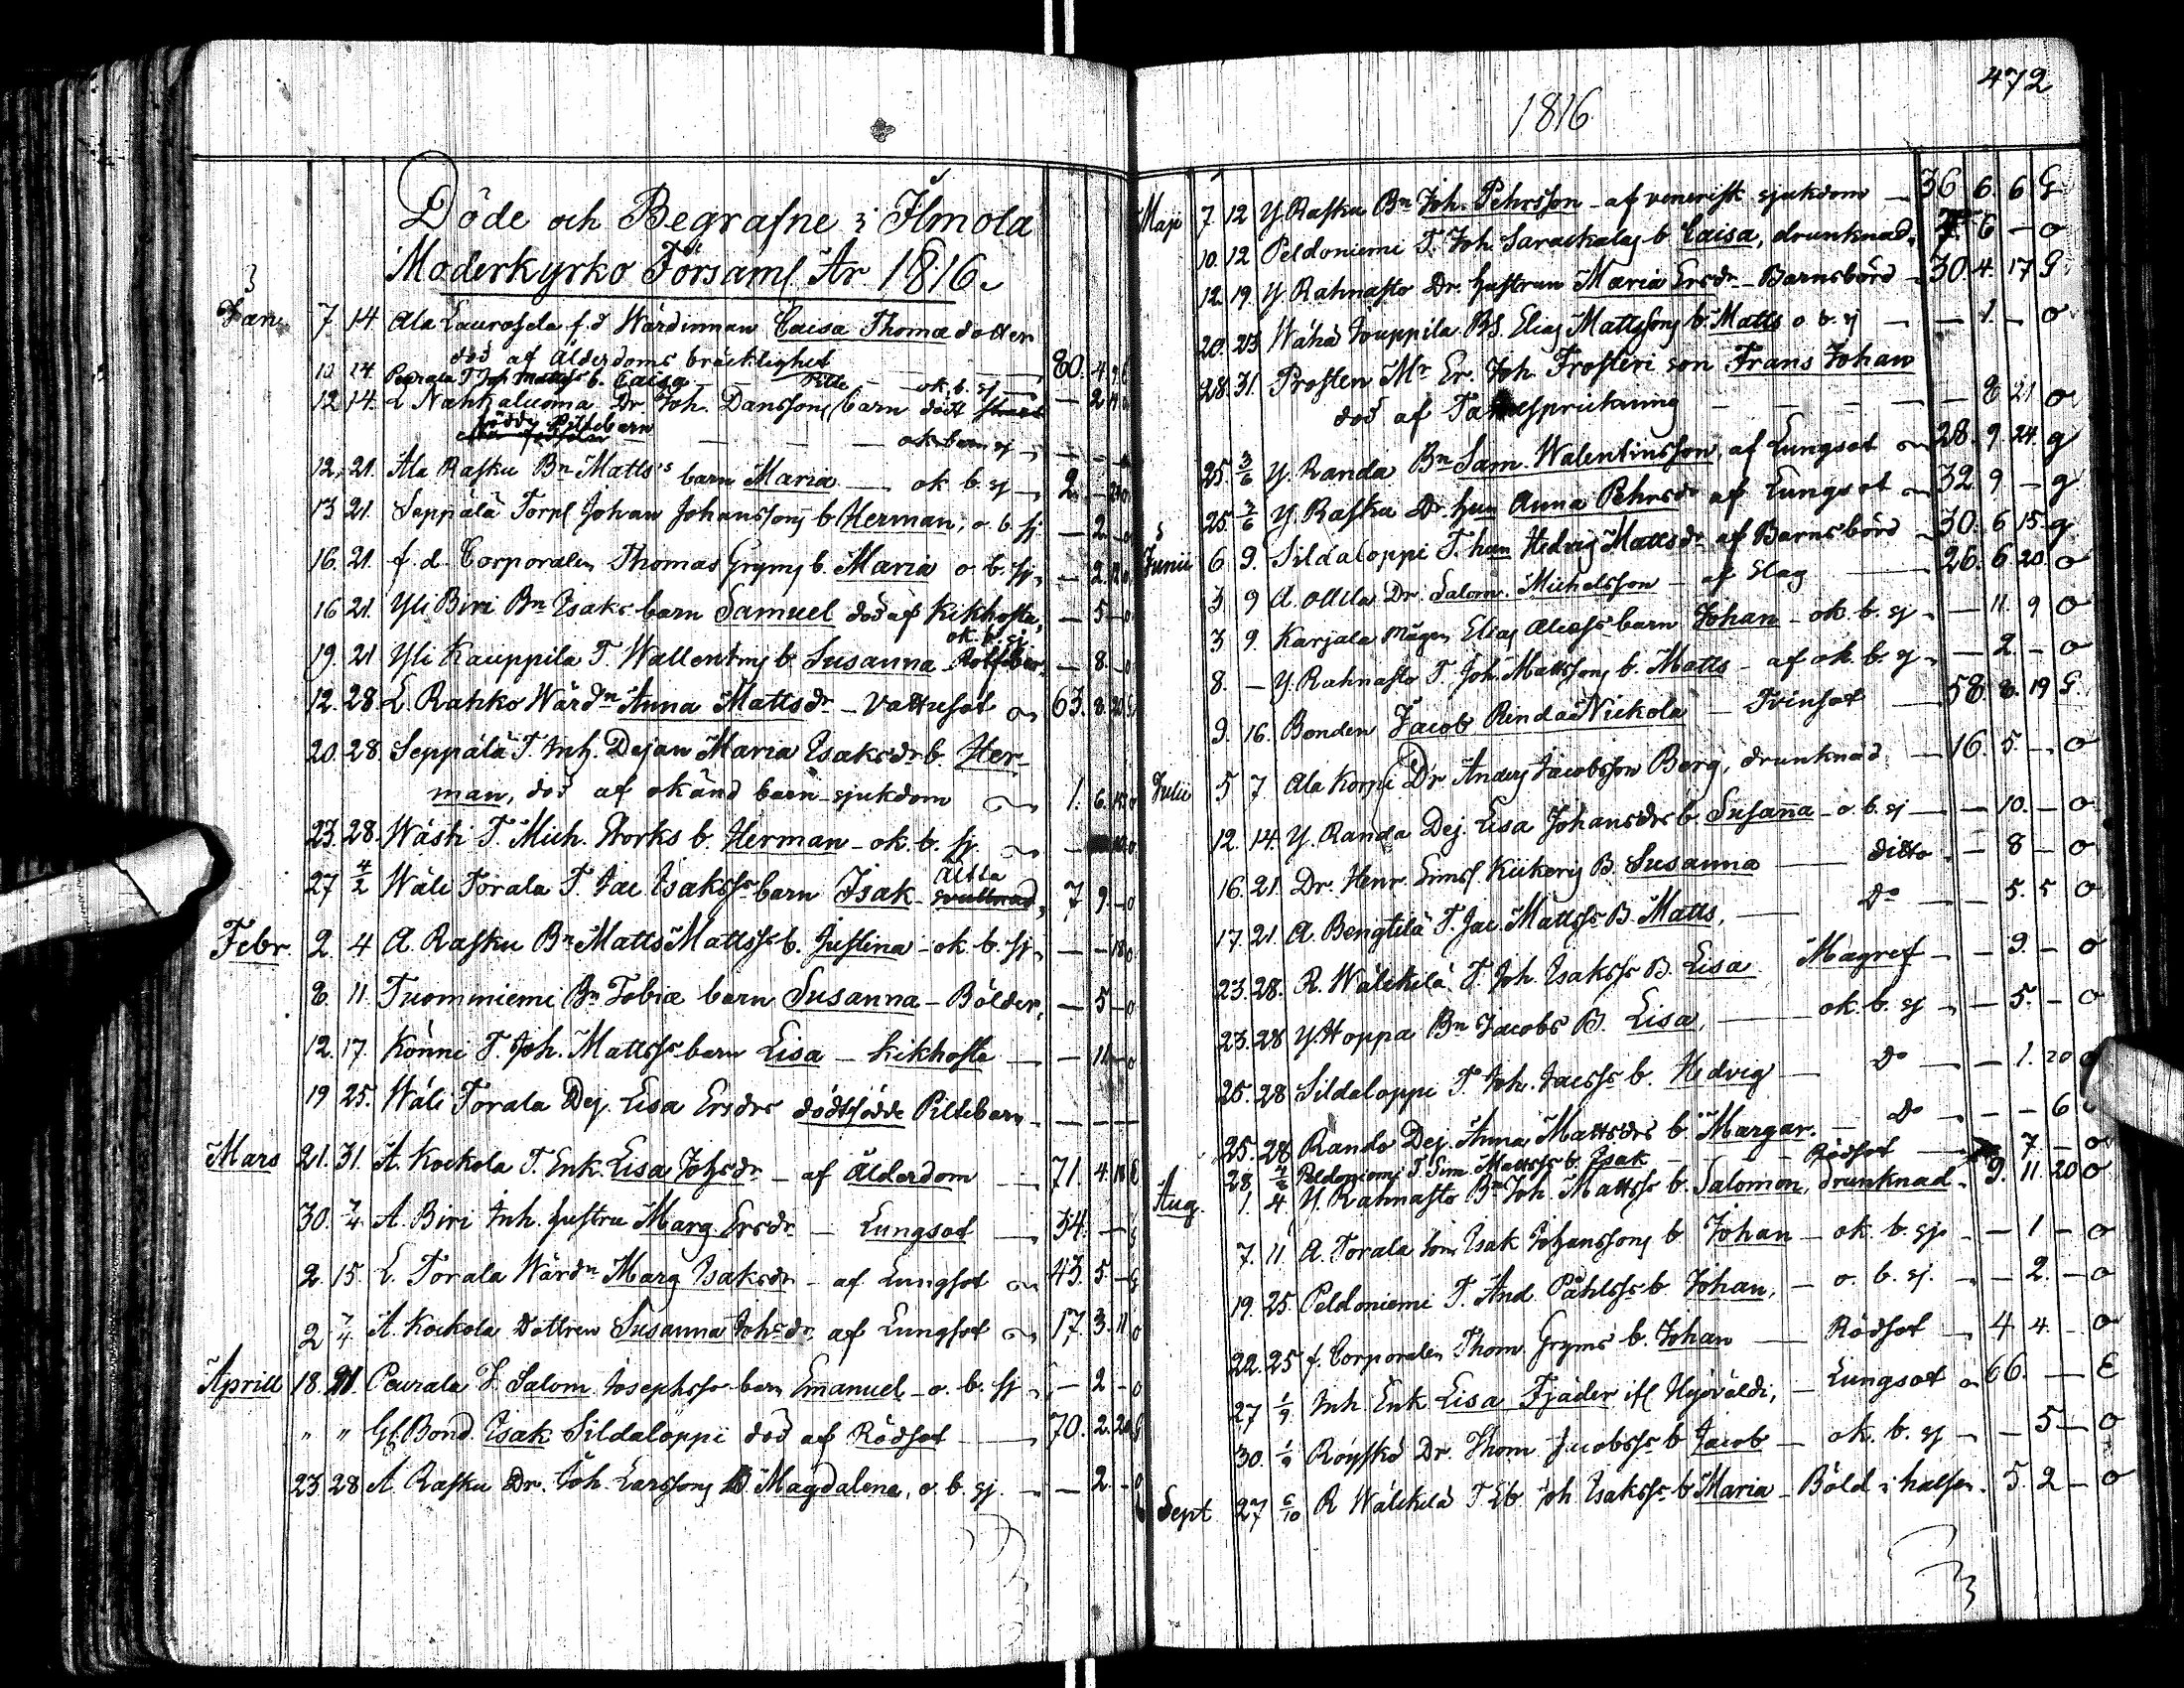 Döde och Begrafne i Ilmola
Moderkyrko Församl År 1816.
Jan. 7 14 Ala Laurosela f.d Wärdinnan Caisa Thomædotter
död af Ålderdoms bräcklighet 80. 4
10. 14. Peurala T. Joh Mattss b. Caisa ok. b. sj 2
12 14. L Nahkaluoma Dr. Joh. Danssons barn dödt
födde Piltebarn
12. 21. Ala Rasku Bn Matts's barn Maria — ok b. sj 2. —
13 21. Seppälä Torp Johan Johanssons b Herman, o. b. sj. — 2. — o
16. 21. f. d. Corporalen Thomas Gryms b. Maria o. b. sj. — 2.
16 21. Yli Biri Bn Isaks barn Samuel död af Kikhosta, — 5 — o
19. 21 Yli Kauppila T. Wallentins b. Susanna ok. b. sj — 8. — o
12. 28. L. Rahko Wärdn Anna Mattsdr — Vattusot 63. 8. 20
20. 28. Seppälä T. Inh. Dejan Maria Isaksdr b. Her-
man, död af okänd barn-sjukdom 1. 6. 15. o
23. 28. Wäski T. Mich. Storks b. Herman — ok. b. sj.
27 4/2 Wäli Torala T. Jac Isakss barn Isak 7 9. — o
Febr. 2 4 A. Rasku Bn Matts Mattss b. Justina — ok. b. sj. — — 18 o
8. 11. Tuomiemi Bn Tobiæ barn Susanna — Bölder, — 5 — o
12. 17. Könni T. Joh. Mattss barn Lisa — Kikhosta
19 25. Wäli Torala Dej. Lisa Ersdrs dödfödde Piltebarn — — —
Mars 21. 31. A. Kockola T. Enk. Lisa Johsdr — af Ålderdom 71. 4. 18
30. 7/4 A. Biri Inh. hustru Marg Ersdr — Lungsot 34. —
2. 15. L. Torala Wärdn Marg Isaksdr — af Lungsot 43. 5. —
2 7/4 A. Kockola Dottren Susanna Johsdr, af Lungsot 17. 3. 11 o
Aprill 18. 21. Peurala T. Salom. Josephss barn Emanuel — o. b. sj — 2 — o
" " Gl. Bond. Isak Sildaloppi död af Rödsot 70. 2. 20
23 28 A. Rasku Dr. Joh. Larssons B Magdalena, o. b. sj. — 2 — o
472
1816
Maji 7 12 Y Rasku Bn Joh. Pehrsson — af venerisk sjukdom 36 6. 6 G
10. 12 Peldoniemi T. Joh b. Caisa, drunknad 6 — o
12. 19. Y. Rahnasto Dr. hustrun Maria Ersdr — Barnsbörd 30. 4. 17 G
20. 23 Wähä Jouppila BS. Elias Mattssons b. Matts o. b. sj — 1. — o
28. 31. Prosten Mr Er. Joh. Frosteri son Frans Johan
död af — 8 21 o
25. 3/6 Y. Randa Bn Sam. Walentinsson, af Lungsot 28. 9. 24. g
25. 3/6 Y. Rasku Dr. hun Anna Pehrsdr af Lungsot 32. 9 — g
Junii 6 9. Sildaloppi T. hun Hedvig Mattsdr af Barnsbörd 30. 6 15 g
3 9 A. Ollila Dr. Salom. Michelsson — af Slag 26. 6 20. o
3 9. Karjala Mågen Elias barn Johan — ok. b. sj — 11. 9 o
8. — Y. Rahnasto T. Joh. Mattssons b. Matts — af ok. b. sj — 2. — o
9. 16. Bonden Jacob Rinda Nickola — Tvinsot 58. 8. 19 G.
Julii 5 7. Ala Korpi Dr Anders Jacobsson Berg, drunknad 16. 5. — o
12. 14. Y. Randa Dej. Lisa Johansdrs b. Susanna — o. b. sj — 10. — o
16. 21. Dr. Henr. B. Susanna — ditto — 8 — o
17. 21. A. Bengtilä T. Jac. Mattss B. Matts, — Do — 5. 5 o
23. 28. R. Wälikilä T. Joh Isakss B. Lisa Magref — 9. — o
23. 28 Y. Hoppa Bn Jacobs B. Lisa, — ok. b. sj — 5. — o
25. 28 Sildaloppi T. Joh. Jacss b. Hedvig — Do — 1. 20
25. 28 Rando Dej. Anna Mattsdrs b. Margar. — Do — — 6
28 Peldoniemi T. Sim. Mattss b. Isak — Rödsot 7. — o
Aug. 1. 4 Y. Rahnasto Bn Joh. Mattss b. Salomon, drunknad. 9. 11. 20 o
7. 11 A. Torala Isak Johanssons b Johan — ok. b. sj. — 1 — o
19. 25. Peldoniemi T. And Påhlss b. Johan, — o. b. sj. — 2. — o
22. 25 f. Corporalen Thom. Gryms b. Johan — Rödsot 4 4. — o
27 1/9 Inh. Enk. Lisa Fjäder — Lungsot 66. — E
30. 1/9 Röyskö Dr. Thom Jacobss b Jacob — ok. b. sj — 5 — o
Sept 27 6/10 R Wälikilä T Joh Isakss b Maria — Böld i halsen. 5. 2 — o